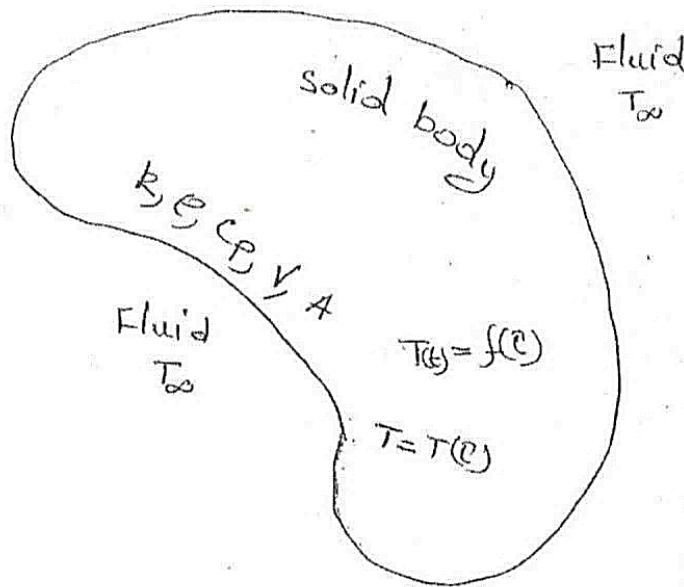 Fluid
T∞
solid body
k, ρ, Cp, V, A
Fluid
T∞
T(t) = f(τ)
T = T(τ)